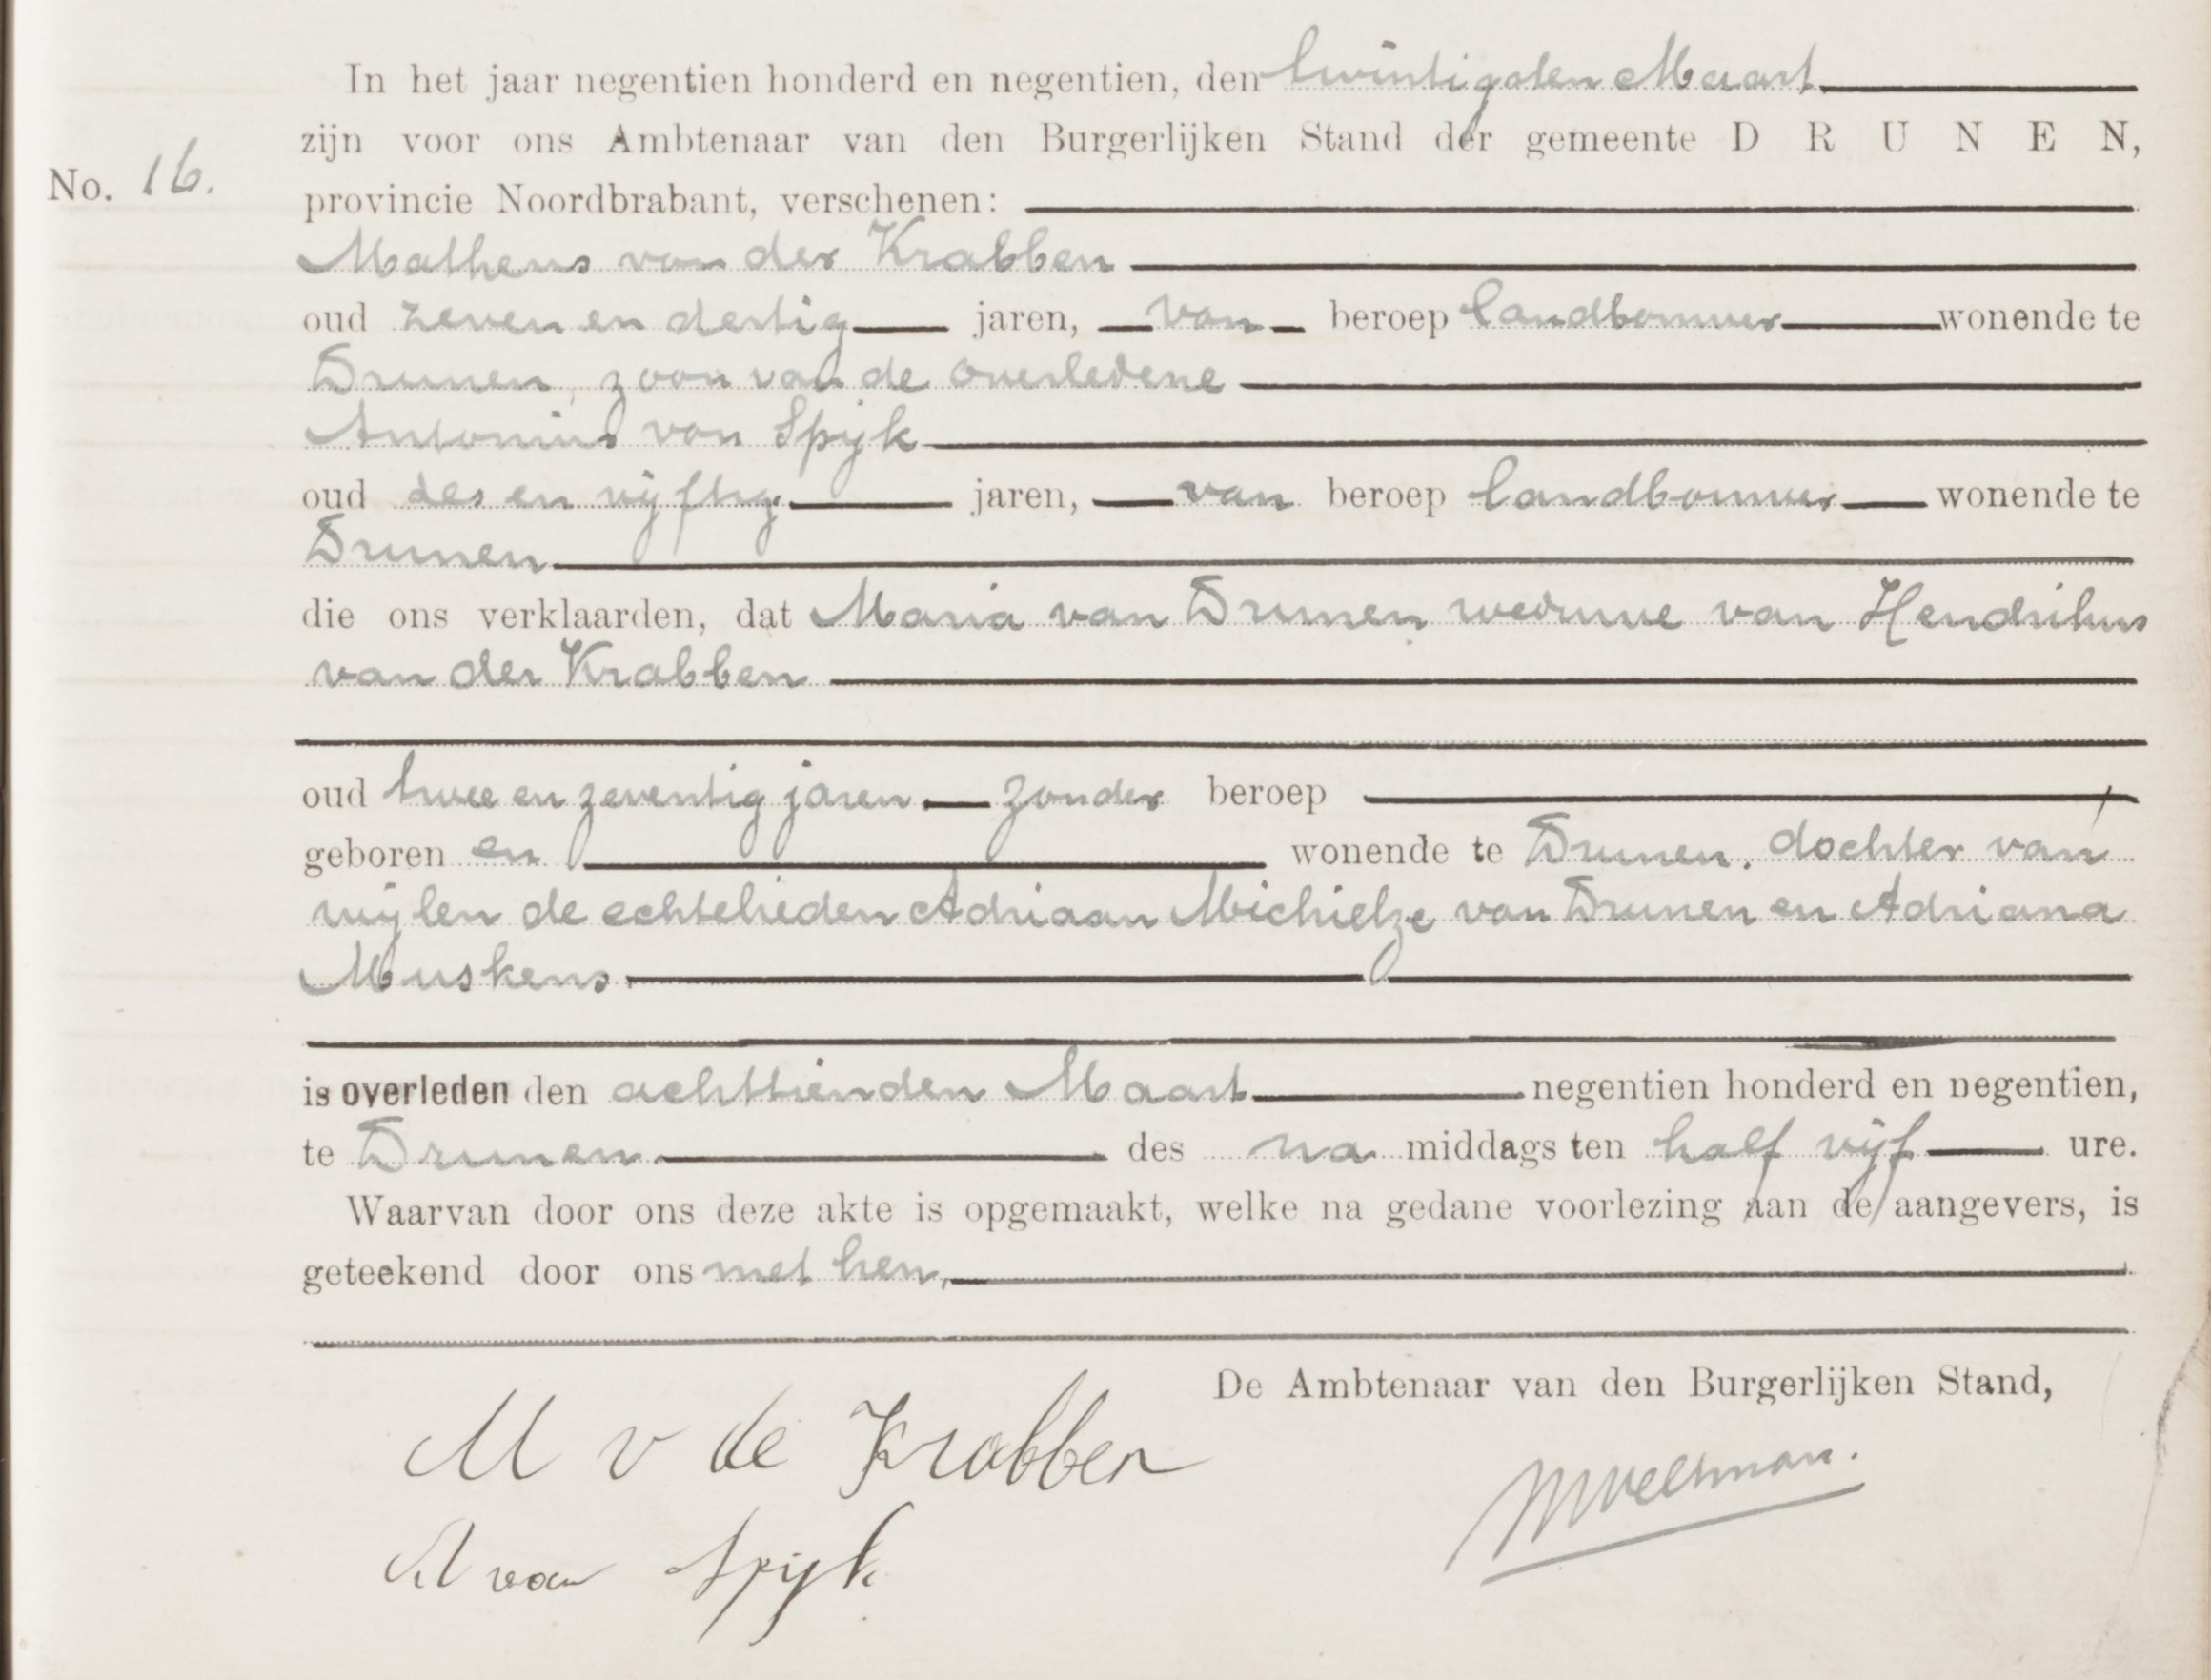 In het jaar negentien honderd en negentien, den twintigsten Maart
zijn voor ons Ambtenaar van den Burgerlijken Stand der gemeente D R U N E N,
No. 16.
provincie Noordbrabant, verschenen:
Matheus van der Krabben
oud zeven en dertig jaren, van beroep landbouwer wonende te
Drunen, zoon van de overledene
Antonius van Spijk
oud zes en vijftig jaren, van beroep landbouwer wonende te
Drunen
die ons verklaarden, dat Maria van Drunen weduwe van Hendrikus
van der Krabben
oud twee en zeventig jaren zonder beroep
geboren en wonende te Drunen, dochter van
wijlen de echtelieden Adriaan Michielze van Drunen en Adriana
Muskens
is overleden den achttienden Maart negentien honderd en negentien,
te Drunen des na middags ten half vijf ure.
Waarvan door ons deze akte is opgemaakt, welke na gedane voorlezing aan de aangevers, is
geteekend door ons met hen,
De Ambtenaar van den Burgerlijken Stand,
M v de Krabben
A van Spijk